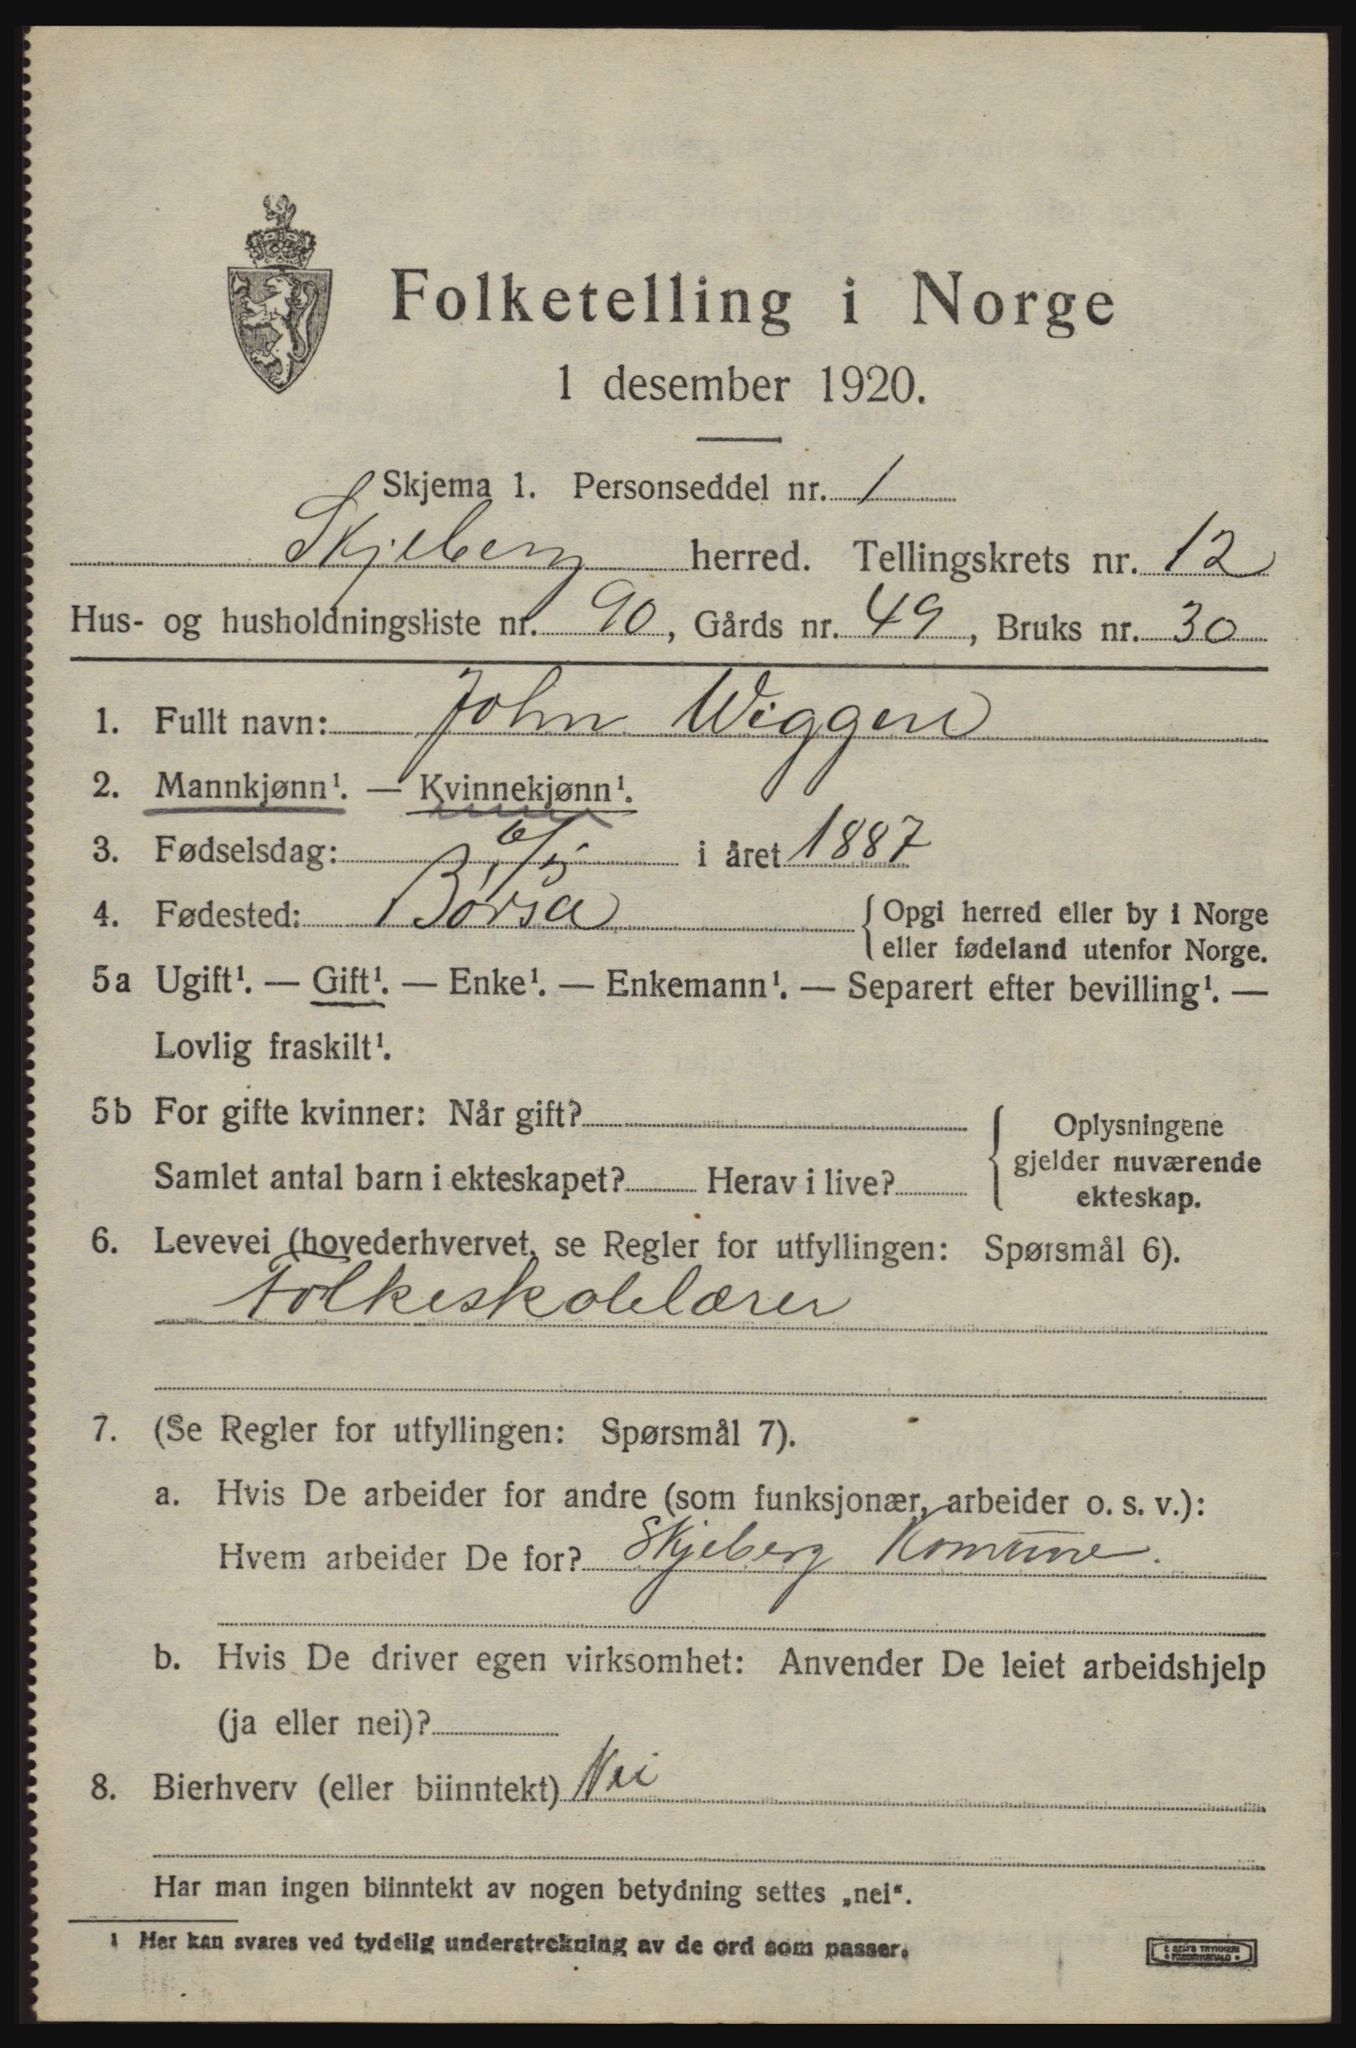 Folketelling i Norge
1 desember 1920.
Skjema 1. Personseddel nr. 1
Skjeberg herred. Tellingskrets nr. 12
Hus- og husholdningsliste nr. 90, Gårds nr. 49, Bruks nr. 30
1. Fullt navn: John Wiggen
2. Mannkjønn¹. — Kvinnekjønn¹.
3. Fødselsdag: 6/5 i året 1887
4. Fødested: Børsa { Opgi herred eller by i Norge
eller fødeland utenfor Norge.
5a Ugift¹. — Gift¹. — Enke¹. — Enkemann¹. — Separert efter bevilling¹. —
Lovlig fraskilt¹.
5b For gifte kvinner: Når gift? { Oplysningene
gjelder nuværende
ekteskap.
Samlet antal barn i ekteskapet? Herav i live?
6. Levevei (hovederhvervet, se Regler for utfyllingen: Spørsmål 6).
Folkeskolelærer
7. (Se Regler for utfyllingen: Spørsmål 7).
a. Hvis De arbeider for andre (som funksjonær, arbeider o. s. v.):
Hvem arbeider De for? Skjeberg Komune.
b. Hvis De driver egen virksomhet: Anvender De leiet arbeidshjelp
(ja eller nei)?
8. Bierhverv (eller biinntekt) Nei
Har man ingen biinntekt av nogen betydning settes „nei“.
1 Her kan svares ved tydelig understrekning av de ord som passer.